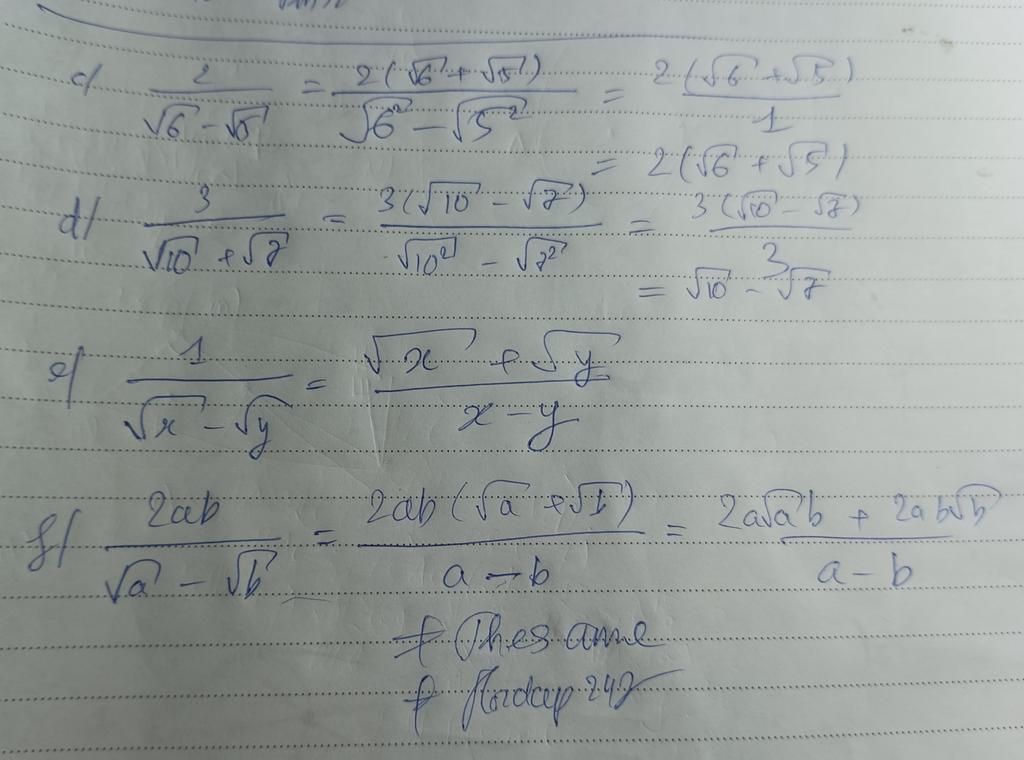 c/ 2/(√6 - √5) = 2(√6 + √5)/(√6² - √5²) = 2(√6 + √5)/1
= 2(√6 + √5)
d/ 3/(√10 + √7) = 3(√10 - √7)/(√10² - √7²) = 3(√10 - √7)/3
= √10 - √7
e/ 1/(√x - √y) = (√x + √y)/(x - y)
f/ 2ab/(√a - √b) = 2ab(√a + √b)/(a - b) = (2a√a b + 2ab√b)/(a - b)